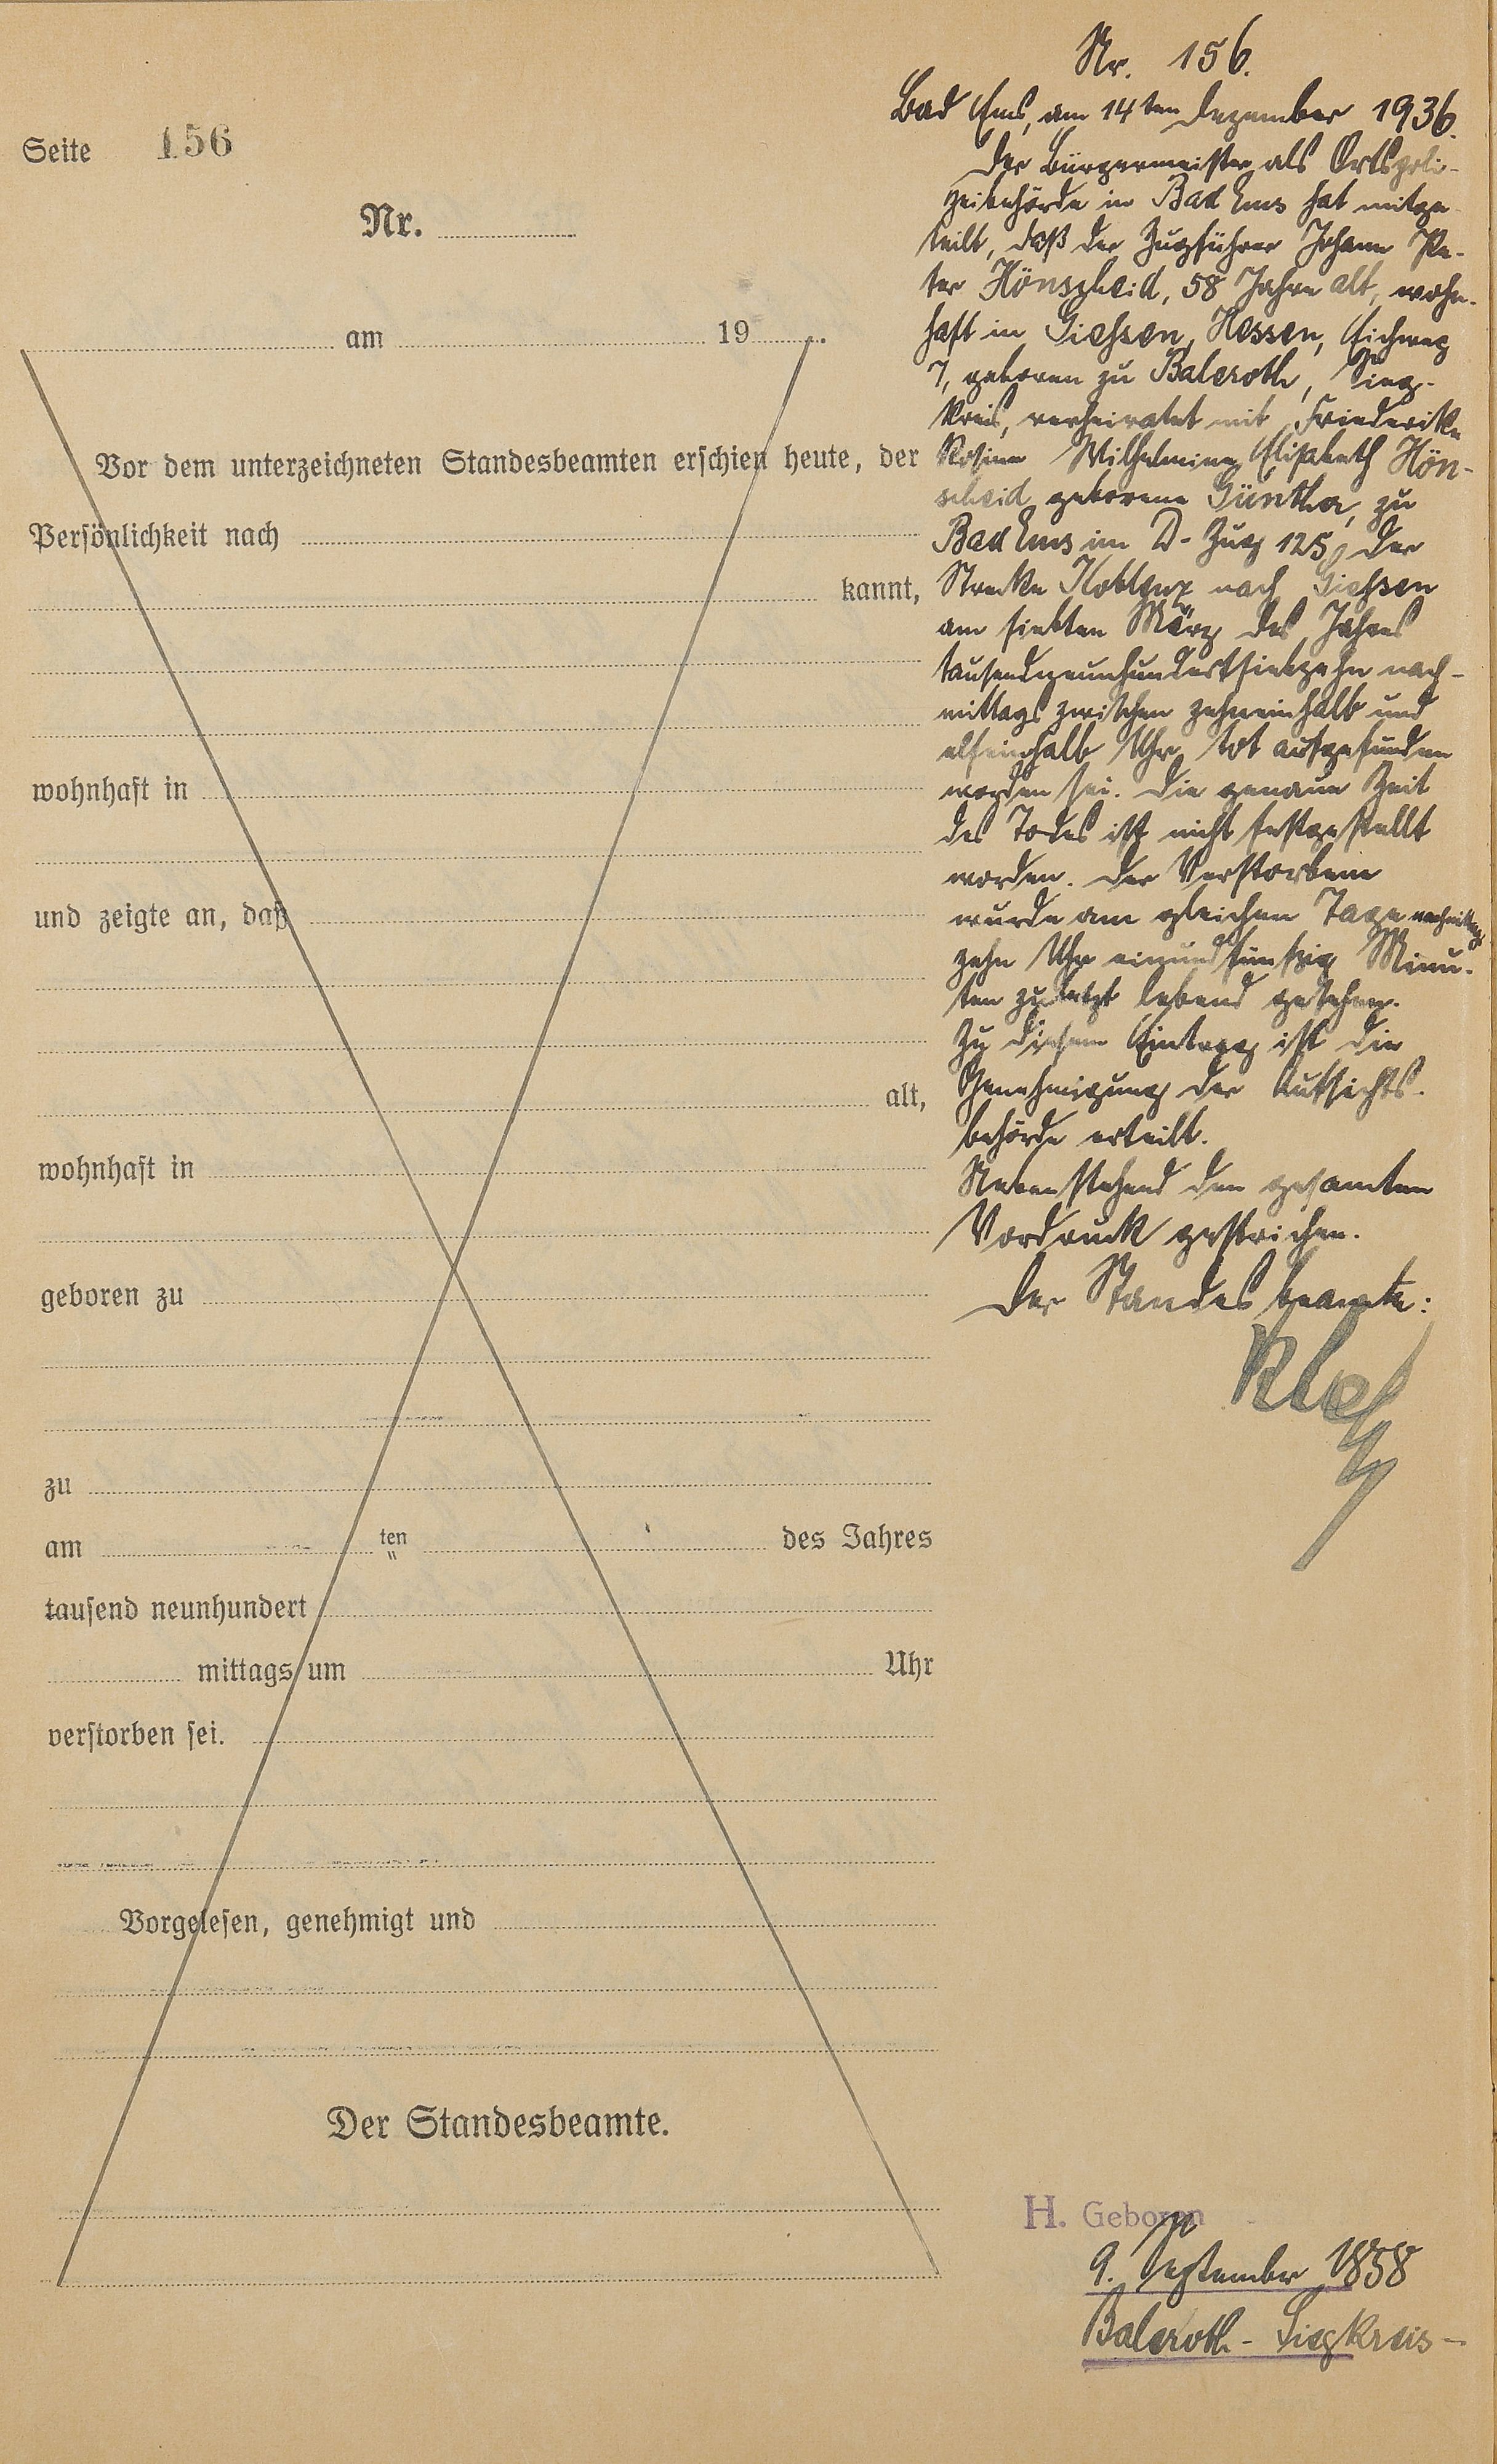 Seite 156
Nr.
am 19 .
Vor dem unterzeichneten Standesbeamten erschien heute, der
Persönlichkeit nach
kannt,
wohnhaft in
und zeigte an, daß
alt,
wohnhaft in
geboren zu
zu
am ten " des Jahres
tausend neunhundert
mittags um Uhr
verstorben sei.
Vorgelesen, genehmigt und
Der Standesbeamte.
Nr. 156.
Bad Ems, am 14ten Dezember 1936.
Der Bürgermeister als Ortspoli-
zeibehörde in Bad Ems hat mitge-
teilt, daß der Zugführer Johann Pe-
ter Hönscheid, 58 Jahre alt, wohn-
haft in Giessen, Hessen, Eichweg
7, geboren zu Baleroth, Sieg-
kreis, verheiratet mit Friederike
Rosine Wilhelmine Elisabeth Hön-
scheid geborene Günther, zu
Bad Ems im D-Zug 125 der
Strecke Koblenz nach Giessen
am siebten März des Jahres
tausendneunhundertsiebzehn nach-
mittags zwischen zehneinhalb und
elfeinhalb Uhr tot aufgefunden
worden sei. Die genaue Zeit
des Todes ist nicht festgestellt
worden. Der Verstorbene
wurde am gleichen Tage nachmittags
zehn Uhr einundfünfzig Minu-
ten zuletzt lebend gesehen.
Zu diesem Eintrag ist die
Genehmigung der Aufsichts-
behörde erteilt.
Nebenstehend den gesamten
Vordruck gestrichen.
Der Standesbeamte:
H. Geboren
9. September 1858
Baleroth - Siegkreis -